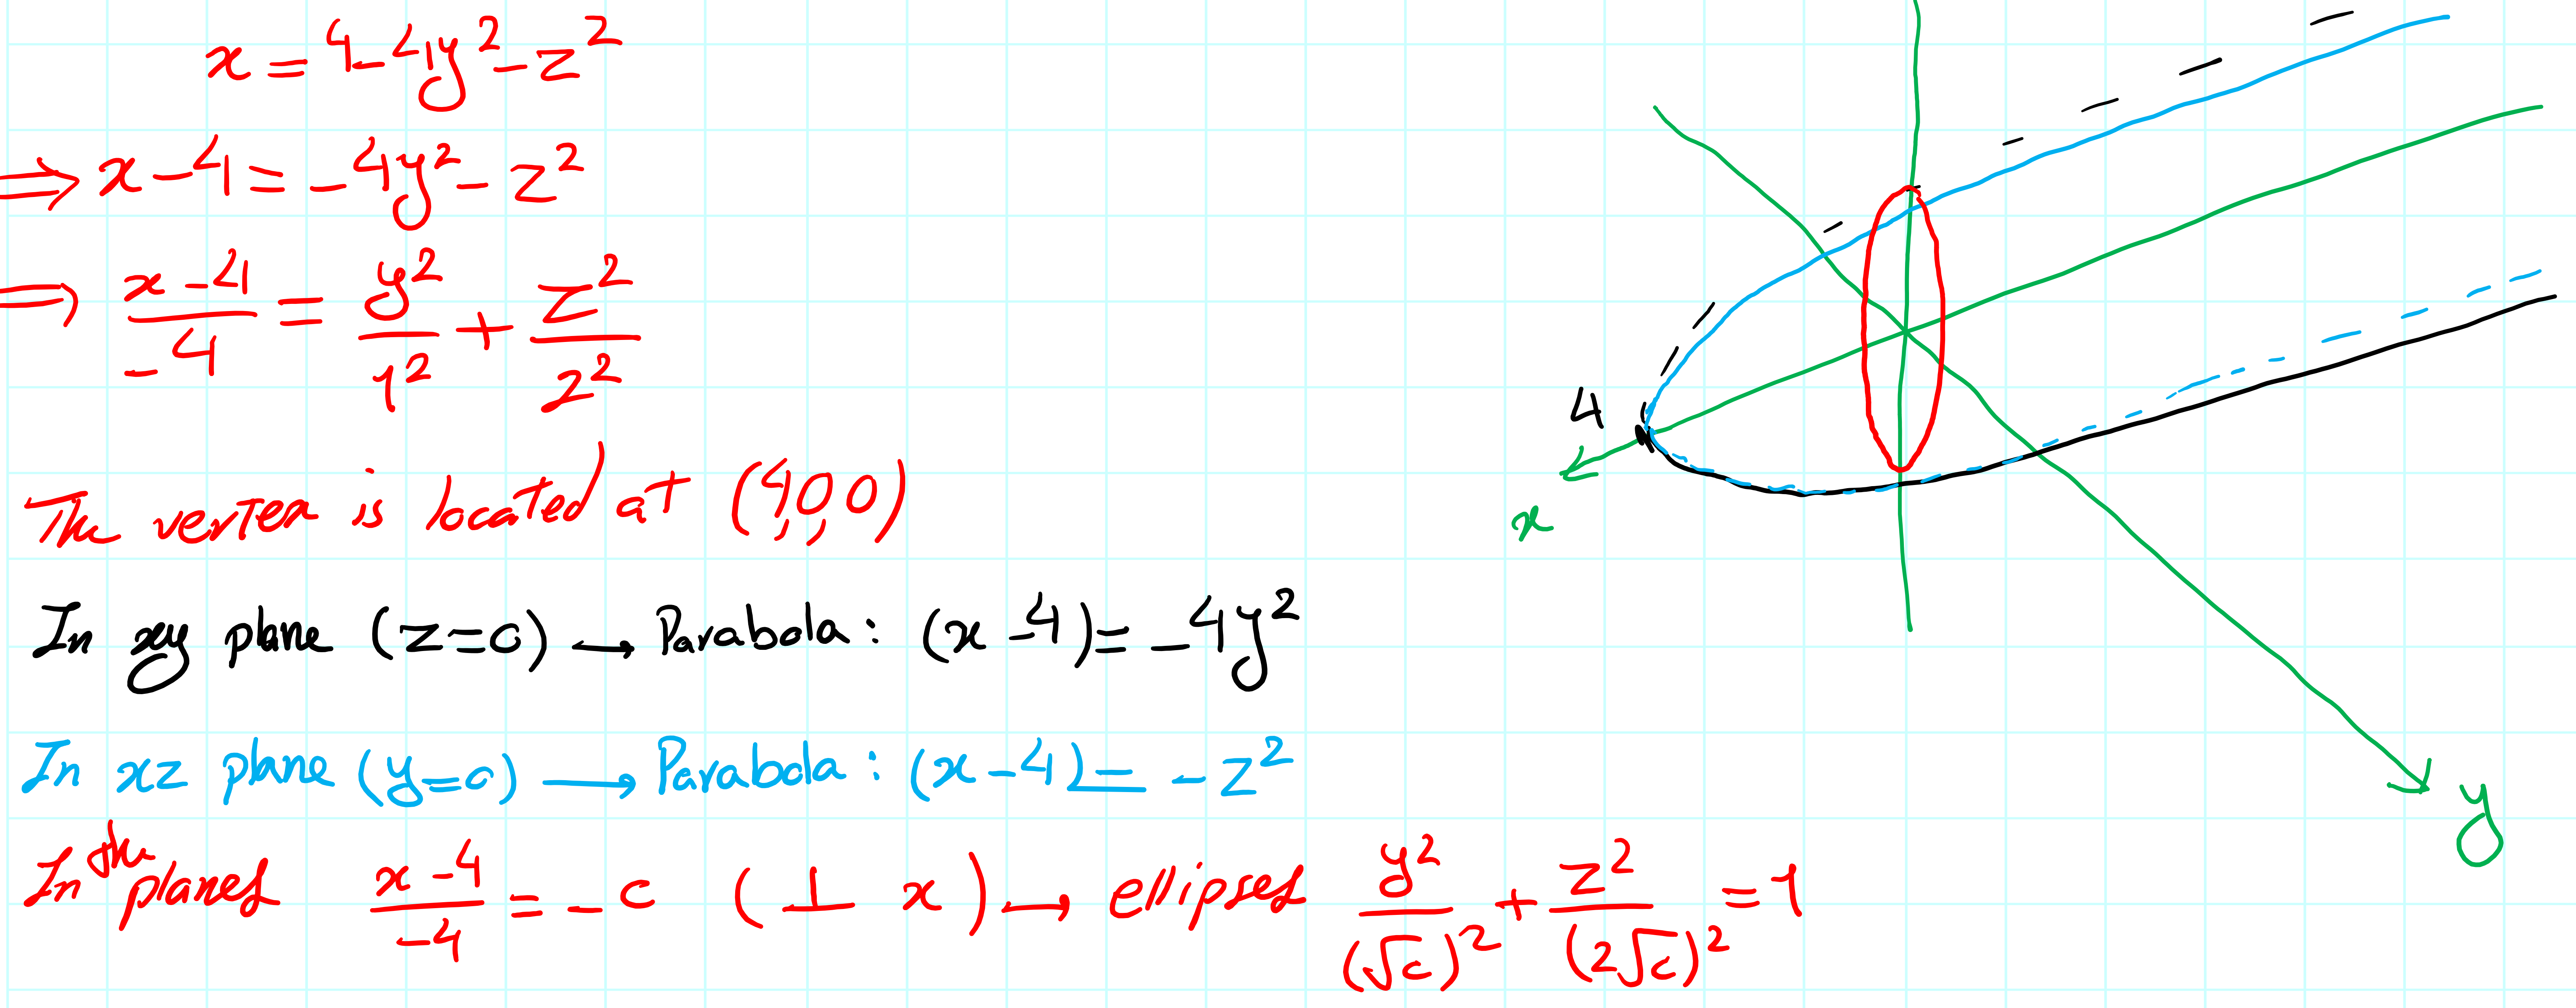 x = 4 - 4y² - z²
⇒ x - 4 = -4y² - z²
⇒ (x - 4)/(-4) = y²/1² + z²/2²
The vertex is located at (4,0,0)
In xy plane (z=0) → Parabola: (x - 4) = -4y²
In xz plane (y=0) → Parabola: (x - 4) = -z²
In the planes (x - 4)/(-4) = -c (⊥ x) → ellipses y²/(√c)² + z²/(2√c)² = 1
4
x
y